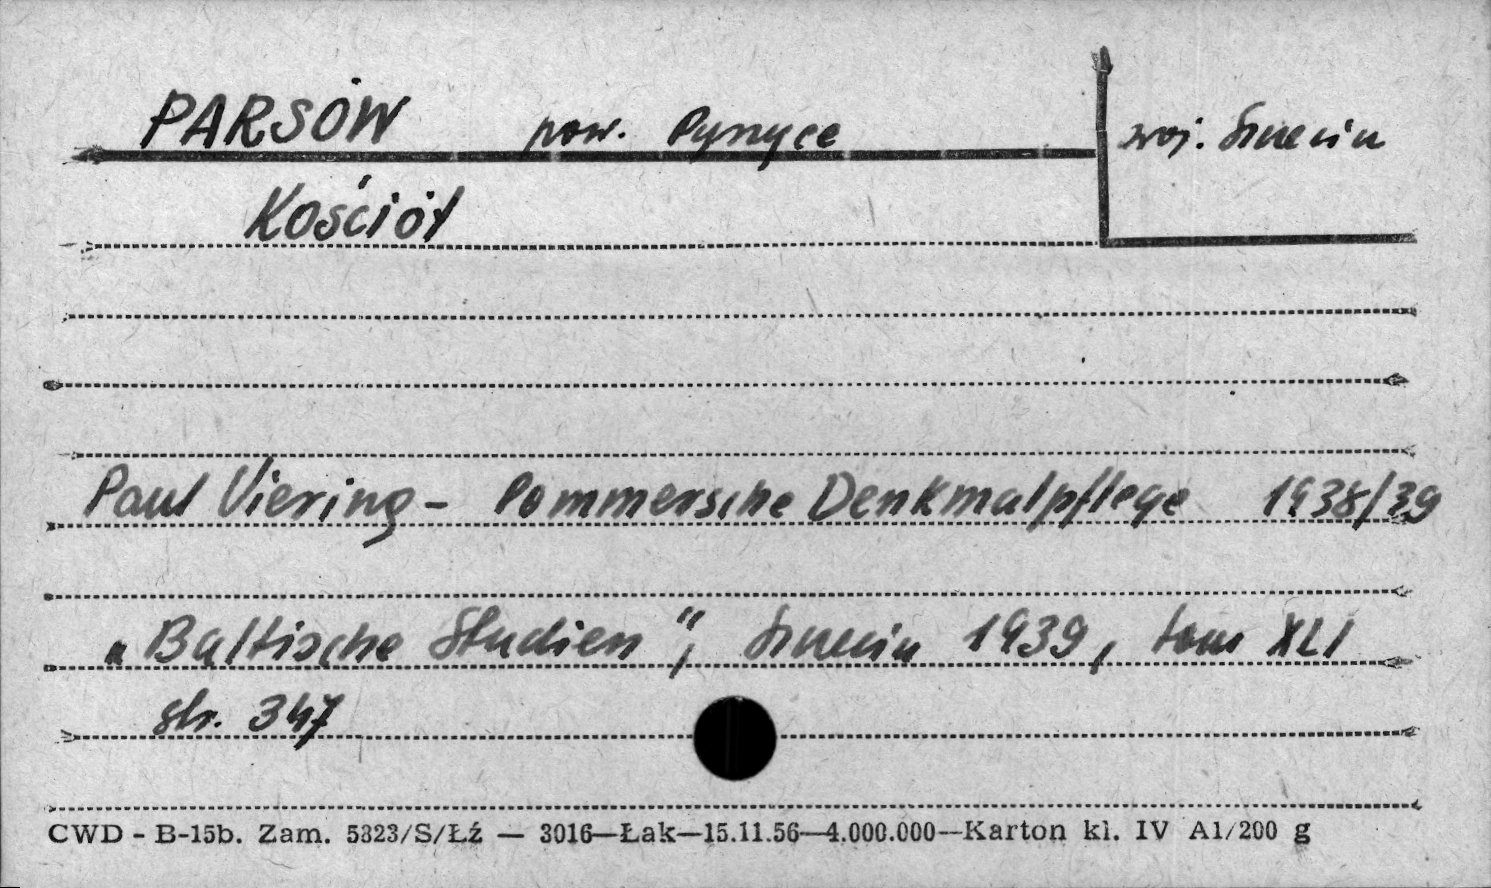 PARSÓW pow. Pyrzyce woj. Szczecin
Kościół
Paul Viering - Pommersche Denkmalpflege 1938/39
„Baltische Studien", Szczecin 1939, tom XLI
str. 347
CWD - B-15b. Zam. 5323/S/Łź — 3016—Łak—15.11.56—4.000.000—Karton kl. IV A1/200 g